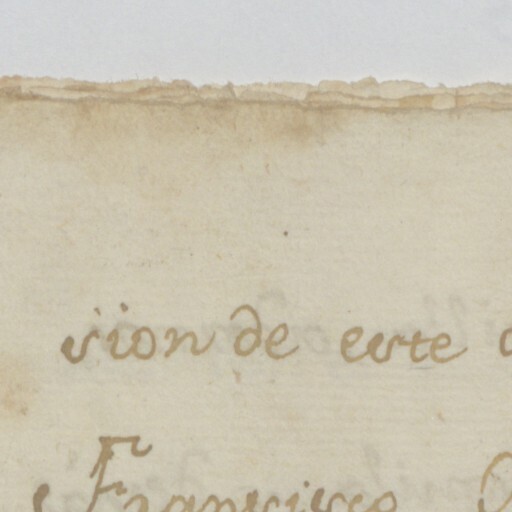 sion de este
Francisco